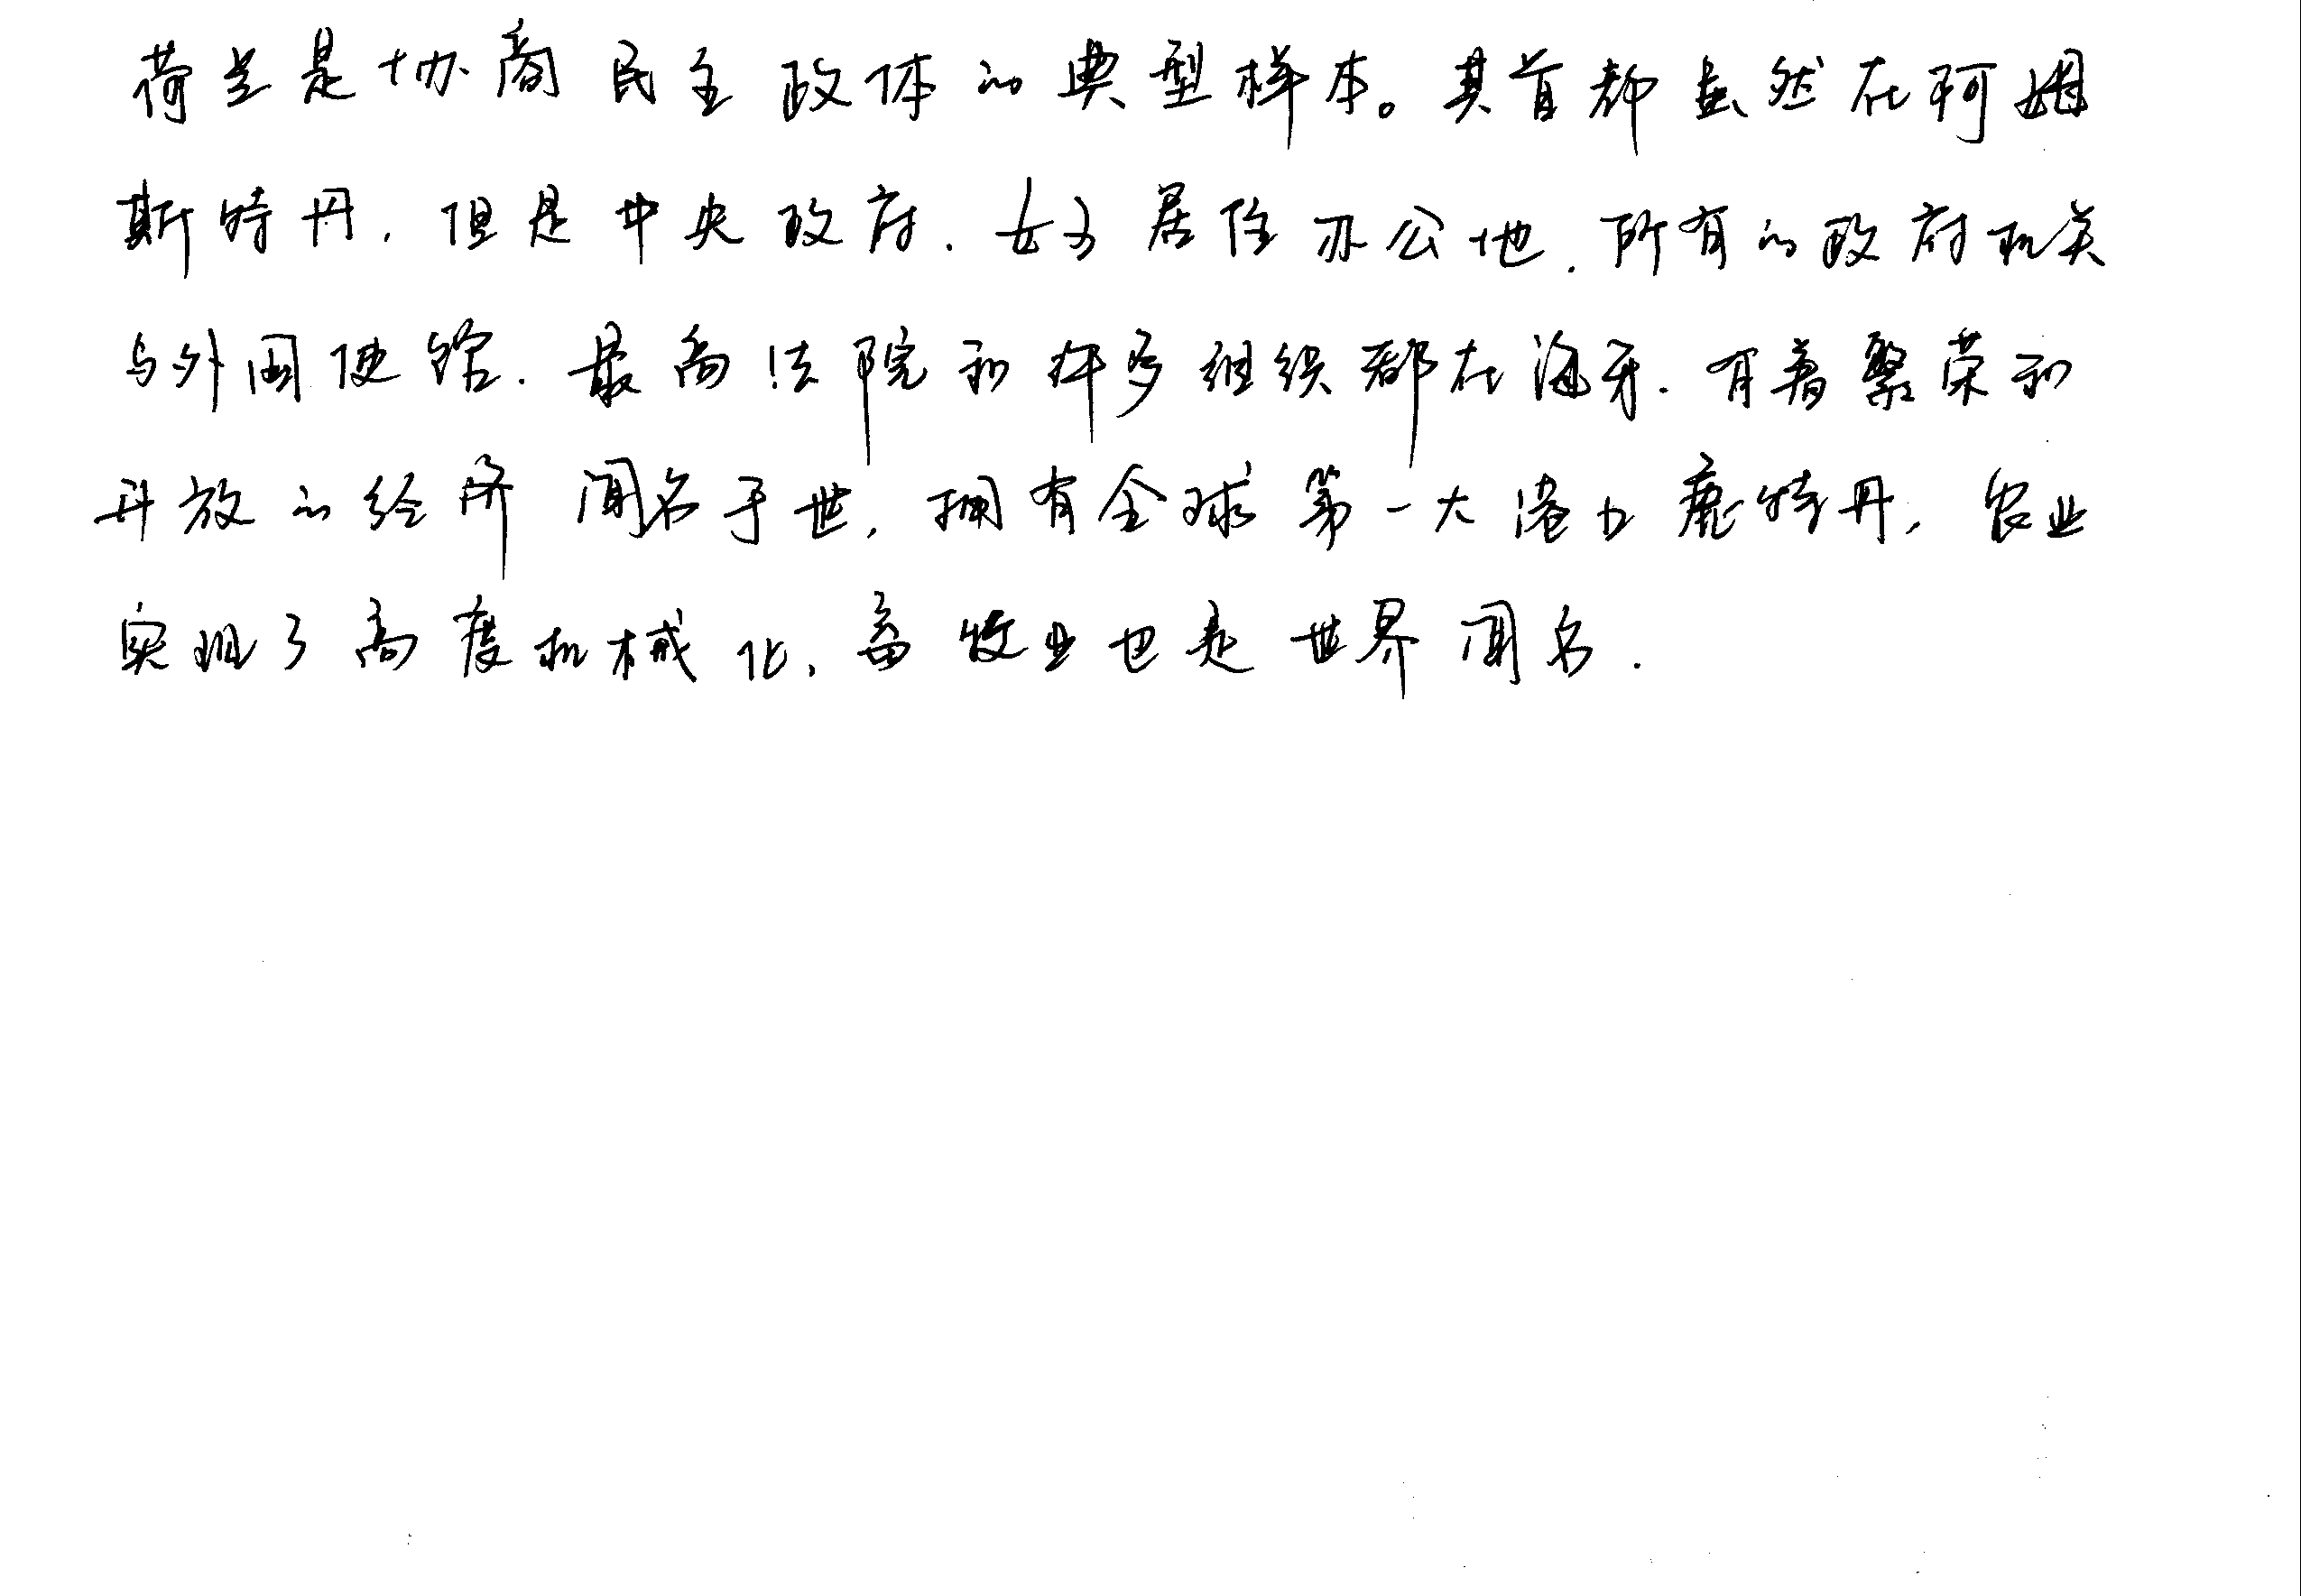 荷兰是协商民主政体的典型样本。其首都虽然在阿姆
斯特丹，但是中央政府，女王居住办公地，所有的政府机关
与外国使馆，最高法院和许多组织都在海牙，有着繁荣和
开放的经济闻名于世，拥有全球第一大港口鹿特丹，农业
实现了高度机械化，畜牧业也是世界闻名.